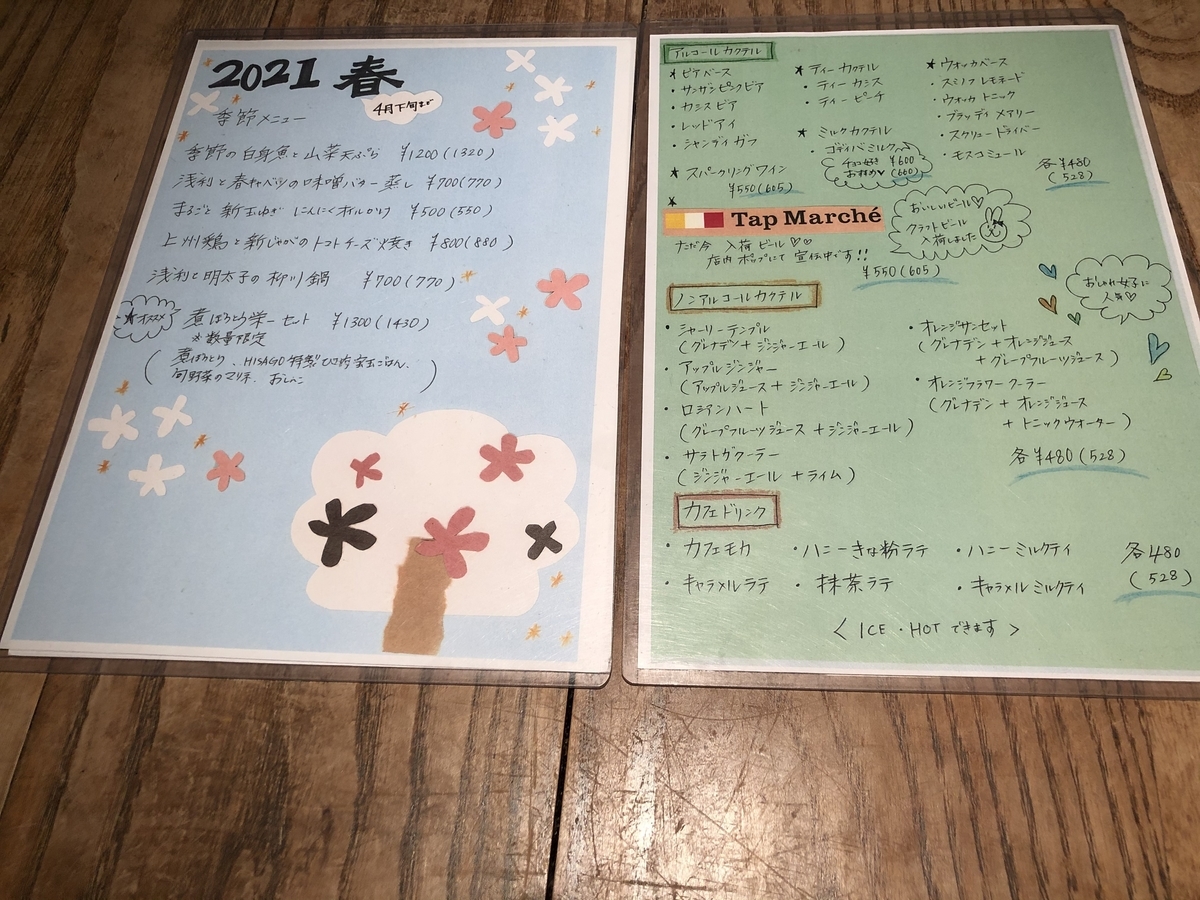 2021 春
4月下旬まで
季節メニュー
季節の白身魚と山菜天ぷら ¥1200(1320)
浅利と春キャベツの味噌バター蒸し ¥700(770)
まるごと新玉ねぎ にんにくオイルがけ ¥500(550)
上州鶏と新じゃがのトマトチーズ焼き ¥800(880)
浅利と明太子の柳川鍋 ¥700(770)
★オススメ
煮ぼうとう栄一セット ¥1300(1430)
※数量限定
(煮ぼうとう、HISAGO特製
旬野菜のマリネ、おしんこ)
アルコールカクテル
★ビアベース
・サンサンピンクビア
・カシスビア
・レッドアイ
・シャンディガフ
★スパークリングワイン
¥550(605)
★ティーカクテル
・ティーカシス
・ティーピーチ
★ミルクカクテル
・ゴディバミルク
チョコ好き ¥600
おすすめ♥ (660)
★ウォッカベース
・スミノフレモネード
・ウォッカトニック
・ブラッディメアリー
・スクリュードライバー
・モスコミュール
各¥480
(528)
★
Tap Marché
ただ今 入荷ビール♡♡
店内ポップにて宣伝中です!!
¥550(605)
おいしいビール♡
クラフトビール
入荷しました
ノンアルコールカクテル
おしゃれ女子に
人気♡
・シャーリーテンプル
(グレナデン+ジンジャーエール)
・アップルジンジャー
(アップルジュース+ジンジャーエール)
・ロシアンハート
(グレープフルーツジュース+ジンジャーエール)
・サラトガクーラー
(ジンジャーエール+ライム)
・オレンジサンセット
(グレナデン+オレンジジュース
+グレープフルーツジュース)
・オレンジフラワークーラー
(グレナデン+オレンジジュース
+トニックウォーター)
各¥480(528)
カフェドリンク
・カフェモカ ・ハニーきな粉ラテ ・ハニーミルクティ 各480
・キャラメルラテ ・抹茶ラテ ・キャラメルミルクティ (528)
<ICE・HOTできます>